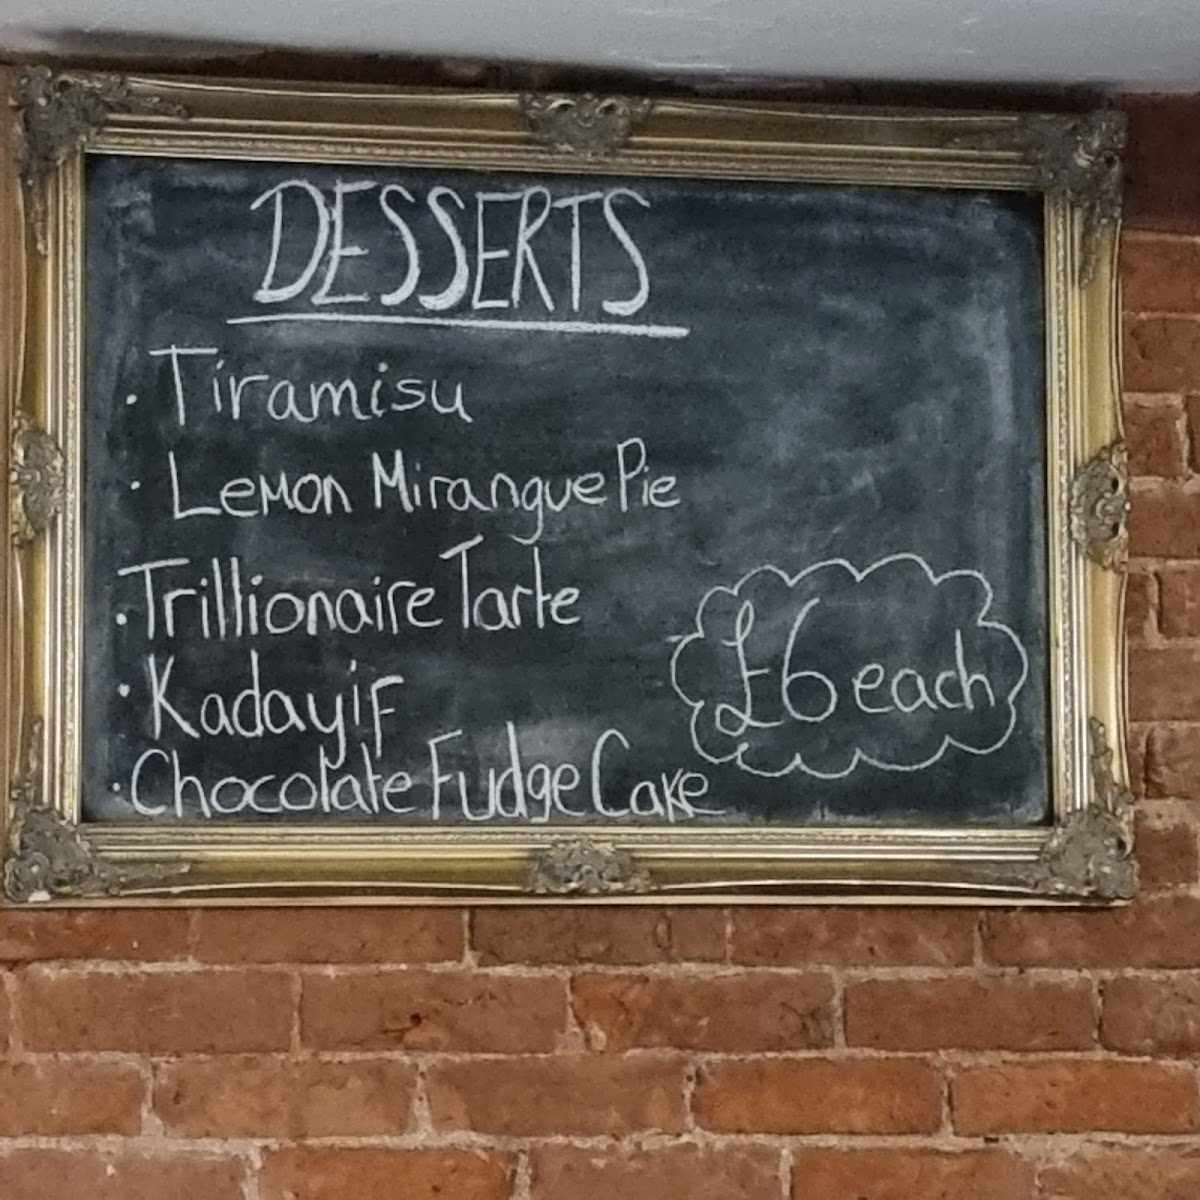 DESSERTS
· Tiramisu
· Lemon Mirangue Pie
· Trillionaire Tarte
· Kadayif
· Chocolate Fudge Cake
£6 each